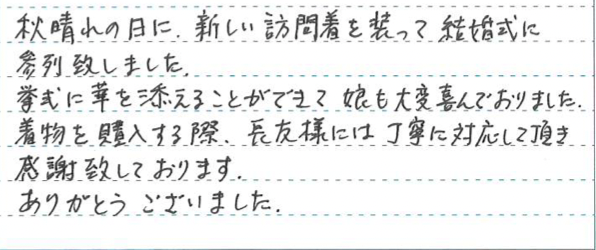 秋晴れの日に、新しい訪問着を装って結婚式に
参列致しました。
挙式に華を添えることができて娘も大変喜んでおりました。
着物を購入する際、長友様には丁寧に対応して頂き
感謝致しております。
ありがとうございました。